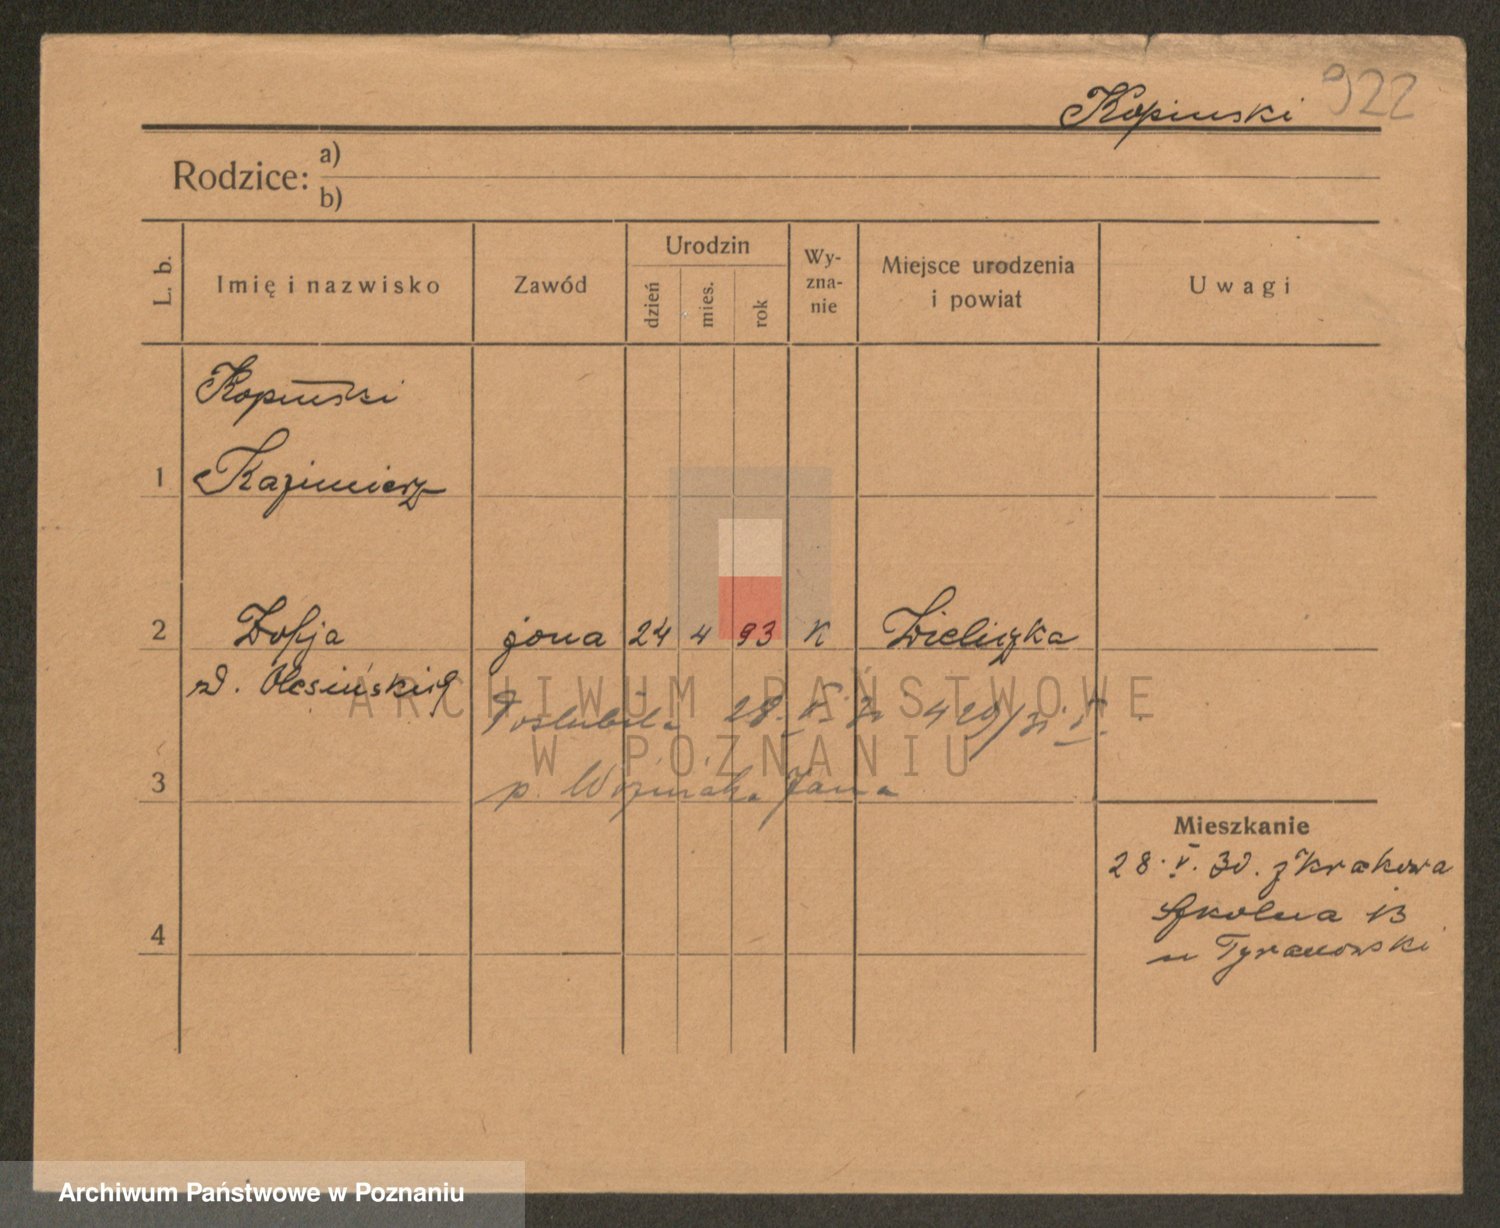 922
Kopinski
Rodzice: a)
b)
L. b.
Imię i nazwisko
Zawód
Urodzin
dzień
mies.
rok
Wy-
zna-
nie
Miejsce urodzenia
i powiat
Uwagi
Kopiński
1 Kazimierz
2 Zofja żona 24 4 93 K Wieliczka
z d. Olesińskich
Poślubiła 28. 420/31
3 p. Jana
Mieszkanie
28. V. 30. z Krakowa
Szkolna 13
4
u Tyranowski
ARCHIWUM PAŃSTWOWE
W POZNANIU
Archiwum Państwowe w Poznaniu